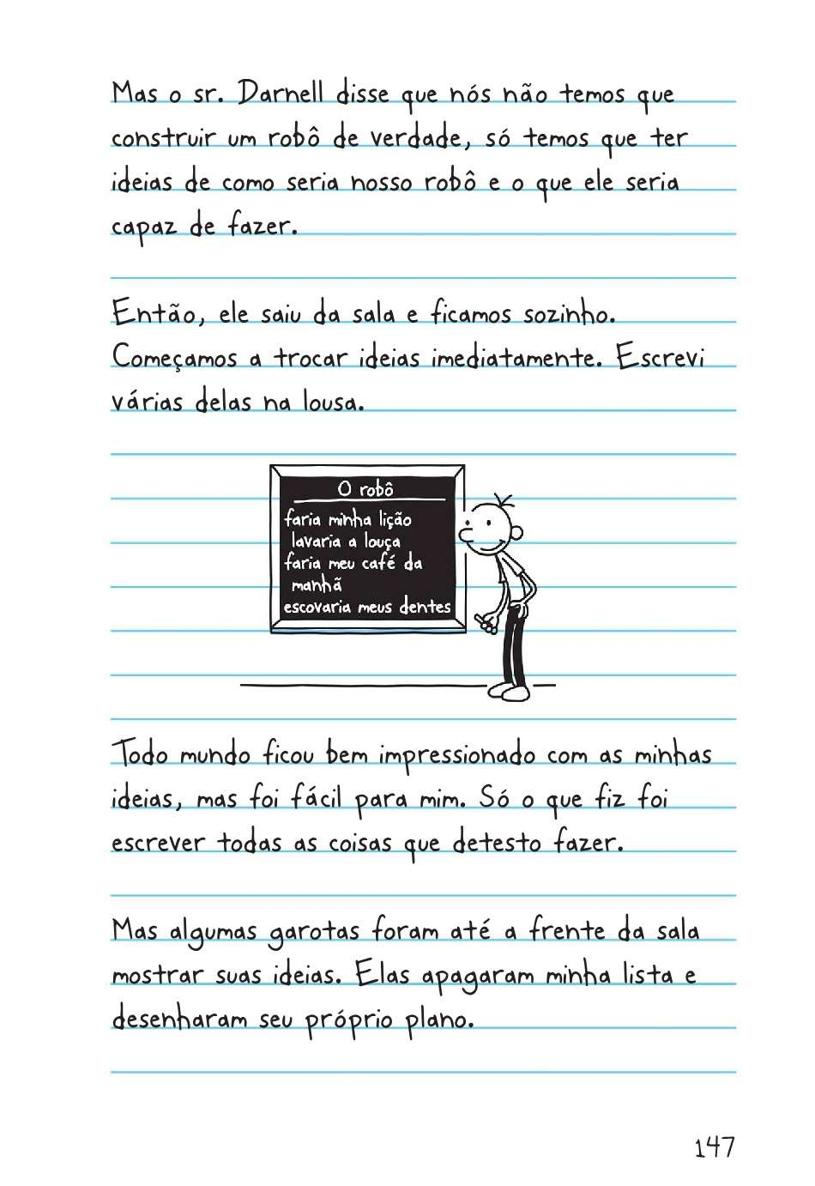 Mas o sr. Darnell disse que nós não temos que
construir um robô de verdade, só temos que ter
ideias de como seria nosso robô e o que ele seria
capaz de fazer.
Então, ele saiu da sala e ficamos sozinho.
Começamos a trocar ideias imediatamente. Escrevi
várias delas na lousa.
O robô
faria minha lição
lavaria a louça
faria meu café da
manhã
escovaria meus dentes
Todo mundo ficou bem impressionado com as minhas
ideias, mas foi fácil para mim. Só o que fiz foi
escrever todas as coisas que detesto fazer.
Mas algumas garotas foram até a frente da sala
mostrar suas ideias. Elas apagaram minha lista e
desenharam seu próprio plano.
147